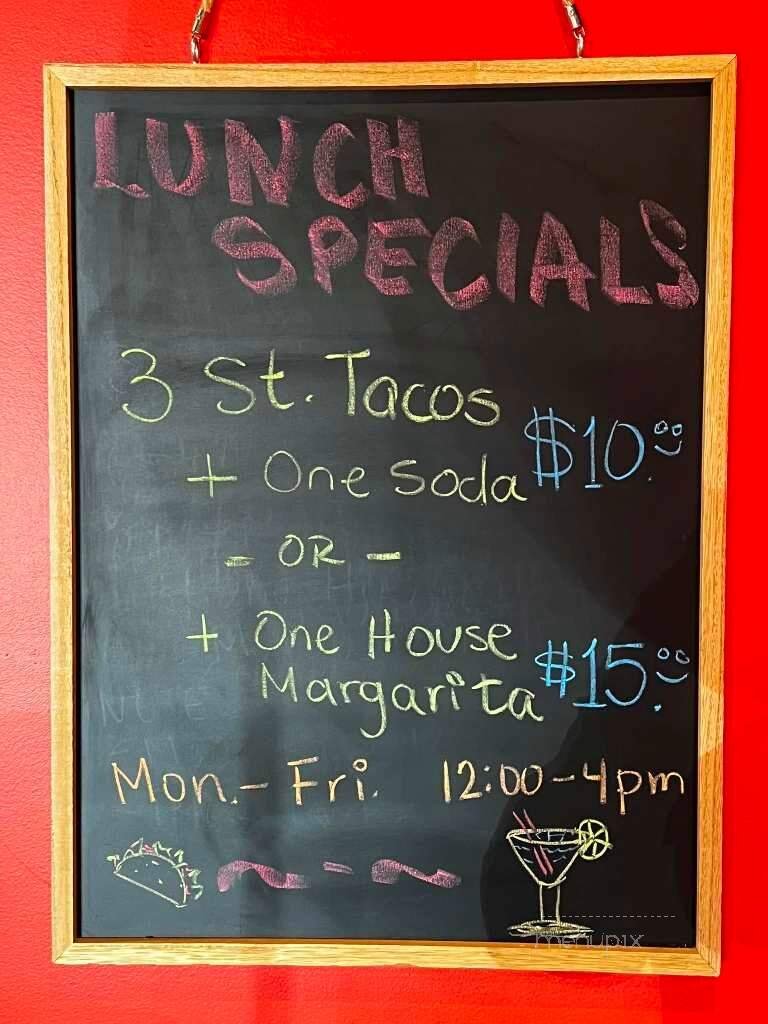 LUNCH
SPECIALS
3 St. Tacos
+ One Soda $10.00
- OR -
+ One House
Margarita $15.00
Mon.- Fri. 12:00-4pm
menupix